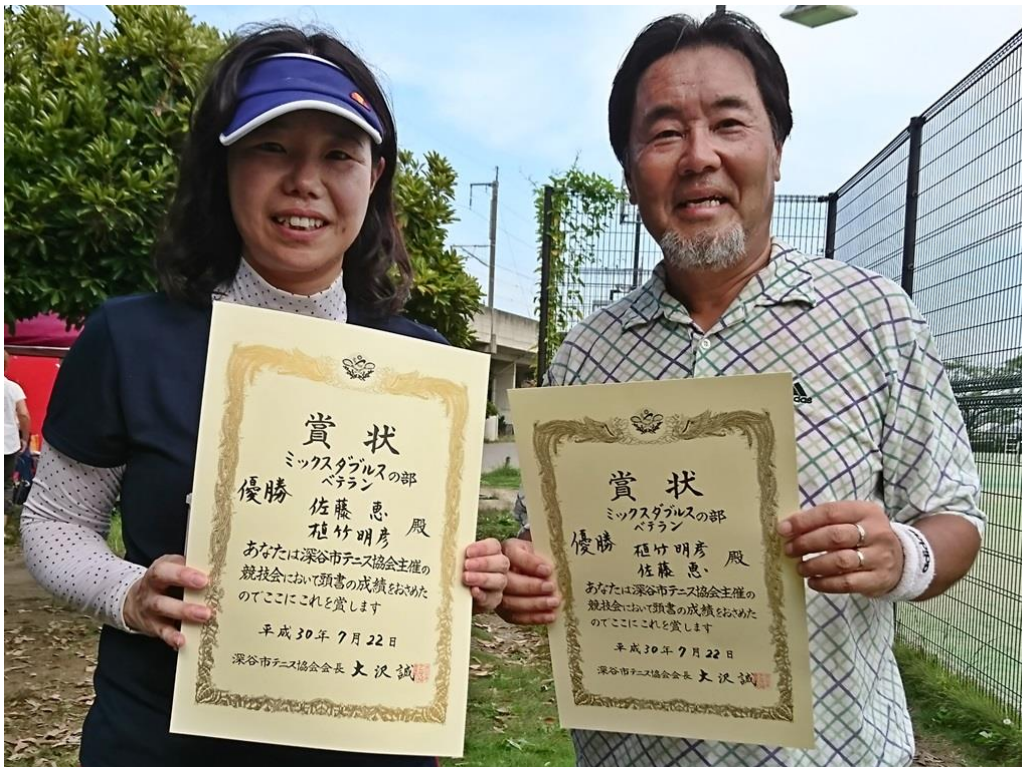 賞状
ミックスダブルスの部
ベテラン
優勝
佐藤 恵
植竹明彦
殿
あなたは深谷市テニス協会主催の
競技会において頭書の成績をおさめた
のでここにこれを賞します
平成30年7月22日
深谷市テニス協会会長 大沢誠
賞状
ミックスダブルスの部
ベテラン
優勝
植竹明彦
佐藤 恵
殿
あなたは深谷市テニス協会主催の
競技会において頭書の成績をおさめた
のでここにこれを賞します
平成30年7月22日
深谷市テニス協会会長 大沢誠
adidas